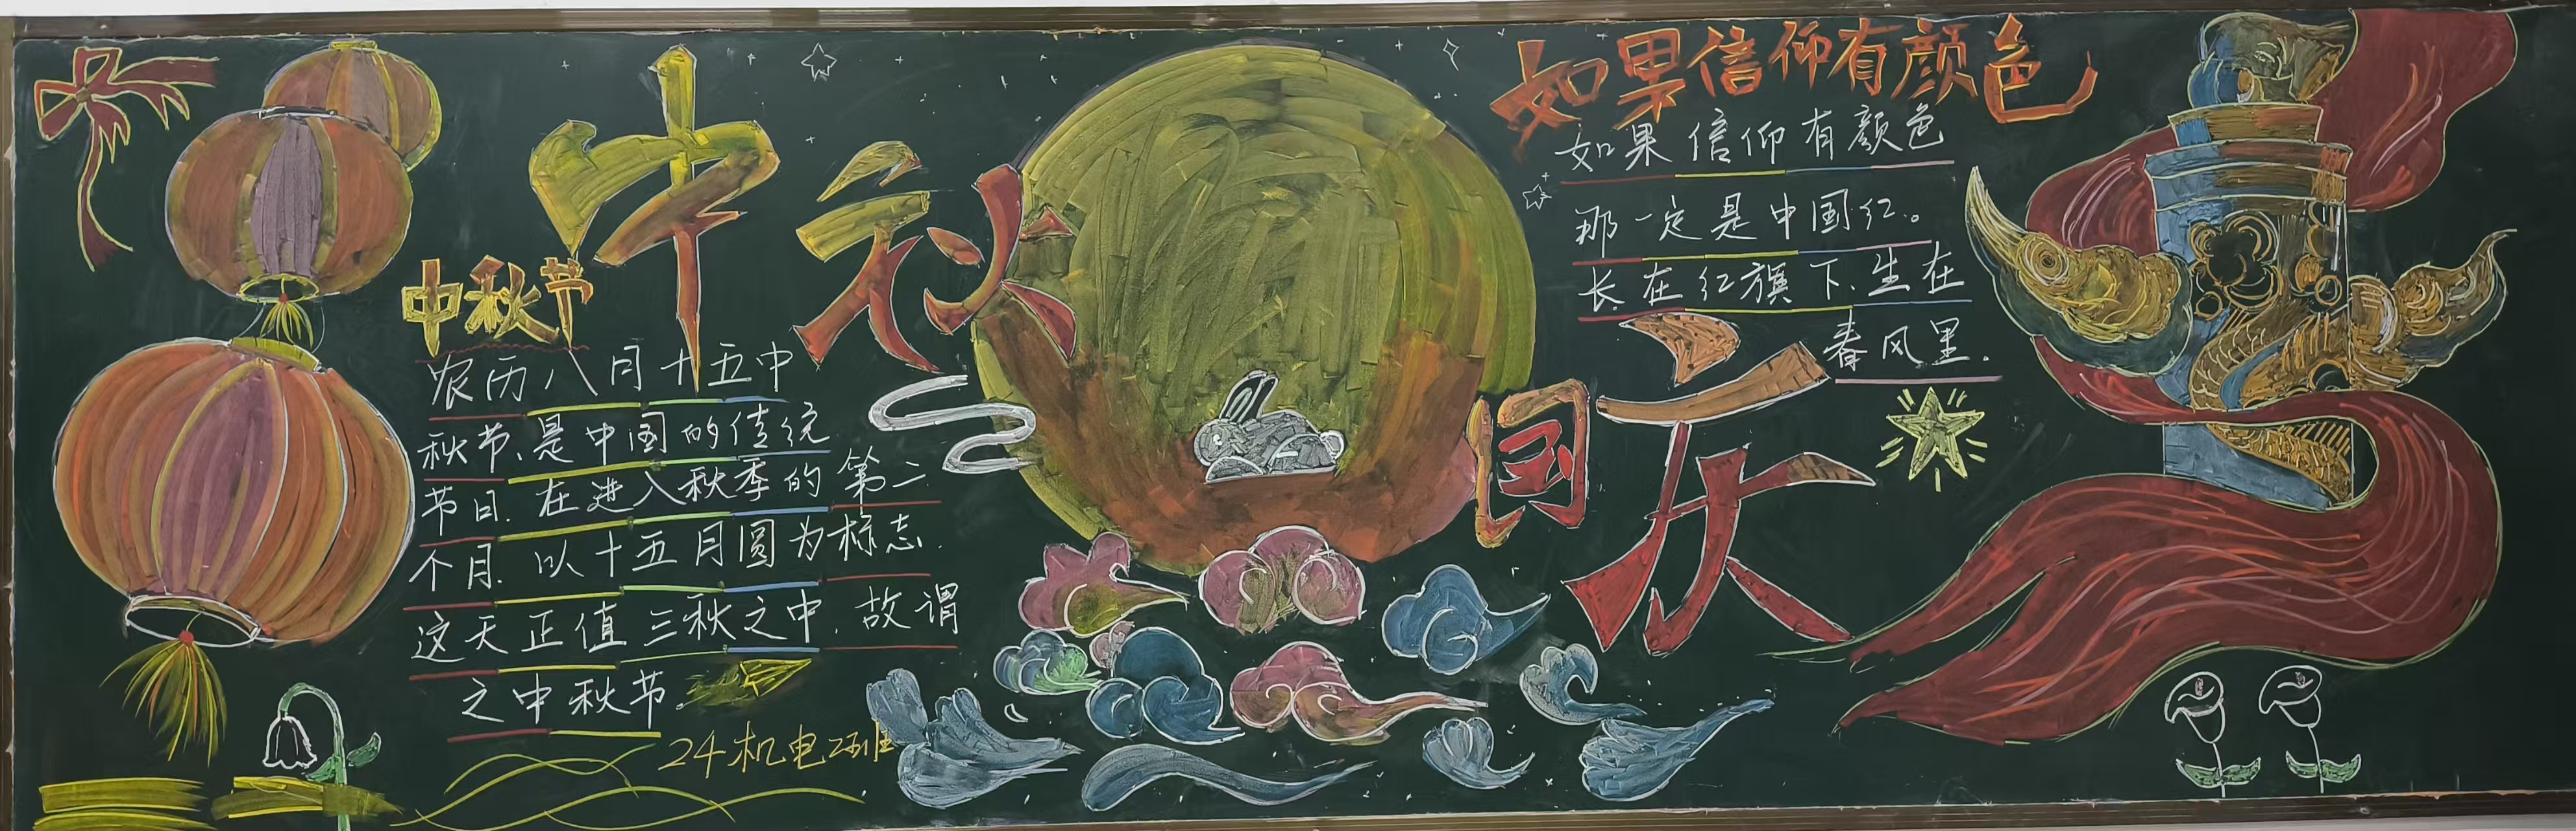 中秋
中秋节
农历八月十五中
秋节、是中国的传统
节日.在进入秋季的第二
个月.以十五月圆为标志.
这天正值三秋之中.故谓
之中秋节.
24机电2班
国庆
如果信仰有颜色
如果信仰有颜色
那一定是中国红。
长在红旗下、生在
春风里.